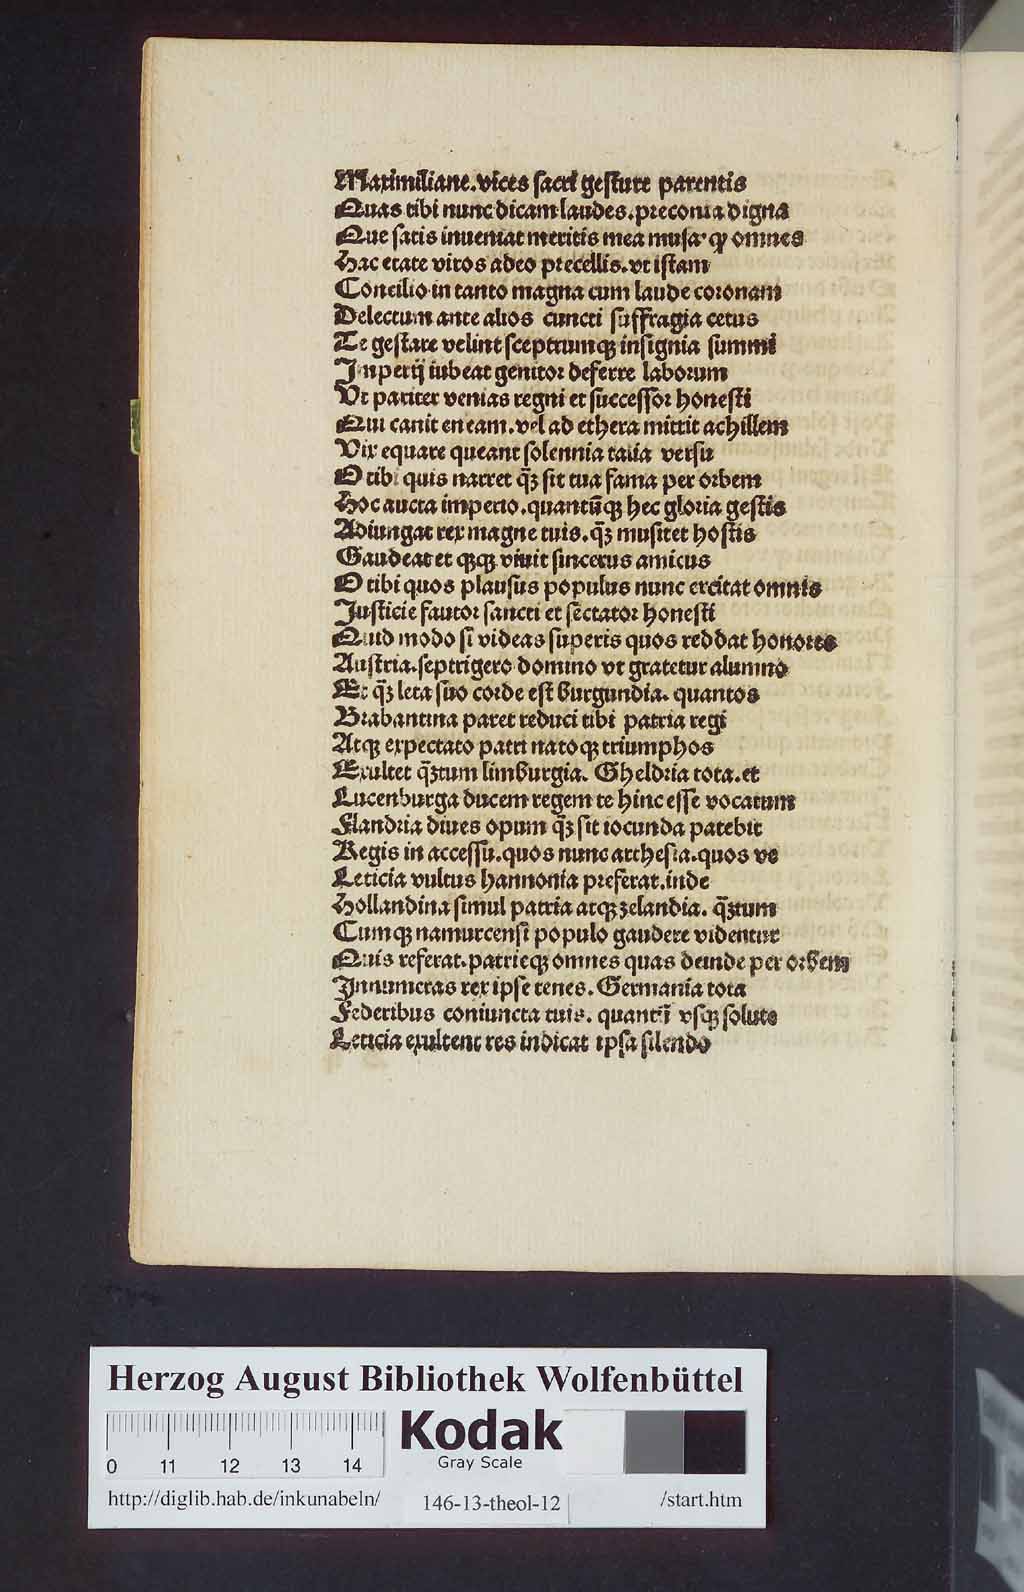 Maximiliane.vices sacri gesture parentis
Quas tibi nunc dicam laudes.preconia digna
Que satis inueniat meritis mea musa. ꝙ omnes
Hac etate viros adeo precellis.vt istam
Concilio in tanto magna cum laude coronam
Delectum ante alios cuncti suffragia cetus
Te gestare velint sceptrumqꝫ insignia summi
Imperij iubeat genitor deferre laborum
Vt pariter venias regni et successor honesti
Qui canit eneam.vel ad ethera mittit achillem
Vix equare queant solennia talia versu
O tibi quis narret q̃ꝫ sit tua fama per orbem
Hoc aucta imperio.quantũqꝫ hec gloria gestis
Adiungat rex magne tuis.q̃ꝫ musitet hostis
Gaudeat et qꝫqꝫ viuit sincerus amicus
O tibi quos plausus populus nunc excitat omnis
Justicie fautor sancti et sectator honesti
Quid modo si videas superis quos reddat honores
Austria.septrigero domino vt gratetur alumno
Et q̃ꝫ leta suo corde est burgundia. quantos
Brabantina paret reduci tibi patria regi
Atqꝫ expectato patri natoqꝫ triumphos
Exultet q̃ꝫtum limburgia. Gheldria tota.et
Lucenburga ducem regem te hinc esse vocatum
Flandria diues opum q̃ꝫ sit iocunda patebit
Regis in accessu.quos nunc arthesia.quos ve
Leticia vultus hannonia preferat.inde
Hollandina simul patria atqꝫ zelandia. q̃ꝫtum
Cumqꝫ namurcensi populo gaudere videntur
Quis referat.patrieqꝫ omnes quas deinde per orbem
Innumeras rex ipse tenes. Germania tota
Federibus coniuncta tuis. quantũ vsqꝫ solute
Leticia exultent res indicat ipsa silendo
Herzog August Bibliothek Wolfenbüttel
0 11 12 13 14
Kodak
Gray Scale
http://diglib.hab.de/inkunabeln/ 146-13-theol-12 /start.htm